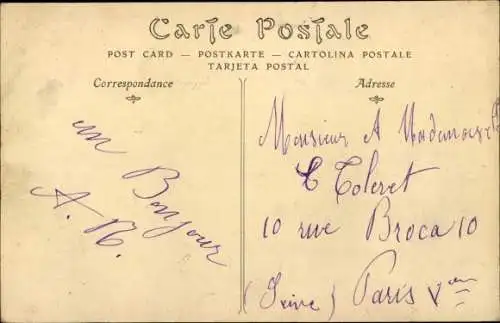 Carte Postale
POST CARD — POSTKARTE — CARTOLINA POSTALE
TARJETA POSTAL
Correspondance
un Bonjour
A. N.
Adresse
Monsieur A Madamoisel
C Coleret
10 rue Broca 10
(Seine) Paris Vem